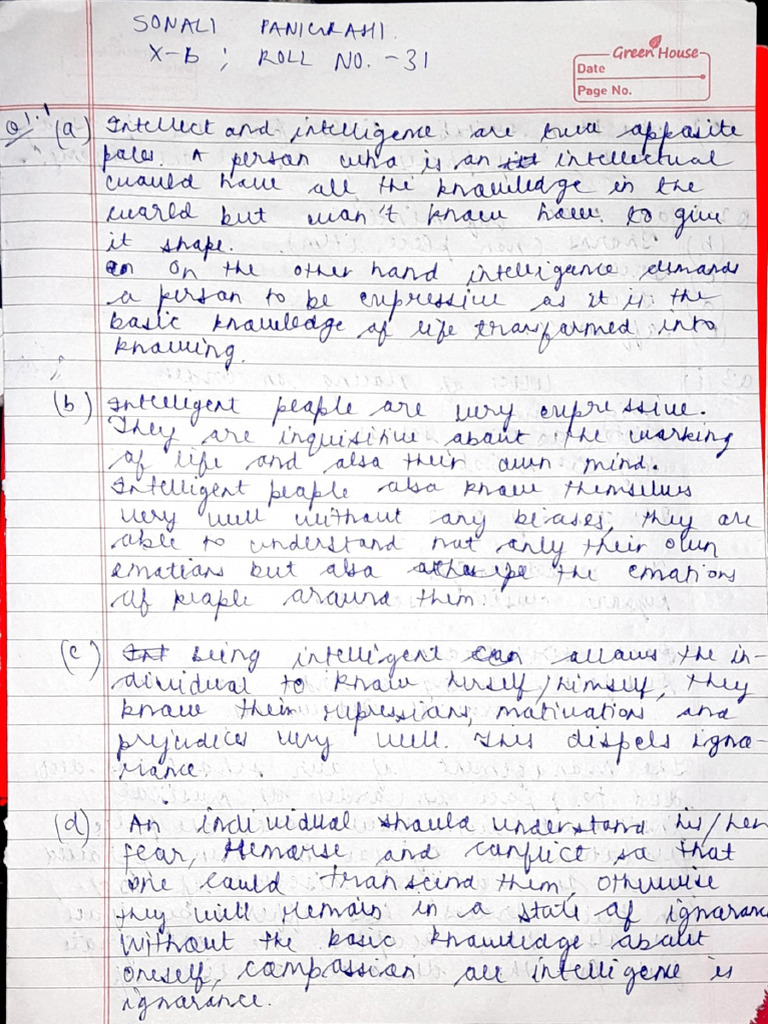 SONALI PANIGRAHI
X-B ; ROLL NO. -31
Green House
Date
Page No.
Q1.1 (a) Intellect and intelligence are two opposite
poles A person who is an intellectual
would have all the knowledge in the
world but won't know how to give
it shape.
On the other hand intelligence demands
a person to be expressive as it is the
basic knowledge of life transformed into
knowing.
(b) Intelligent people are very expressive.
They are inquisitive about the working
of life and also their own mind.
Intelligent people also know themselves
very well without any biases, they are
able to understand not only their own
emotions but also the emotions
of people around them.
(c) Being intelligent allows the in-
dividual to know herself/himself, they
know their repressions, motivations and
prejudices very well. This dispels igno-
rance.
(d) An individual should understand his/her
fear, remorse and conflict so that
one could transcend them, otherwise
they will remain in a state of ignorance
without the basic knowledge about
oneself, compassion all intelligence is
ignorance.